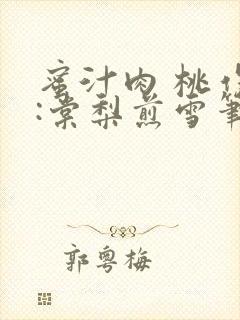 蜜汁肉桃作
:棠梨煎雪筆
郭粵梅